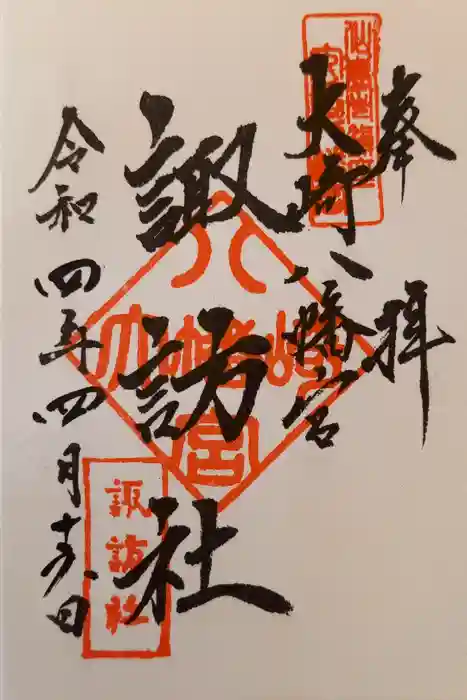 奉拝
大崎八幡宮
諏訪社
令和四年四月十六日
八幡宮
大崎
諏訪社